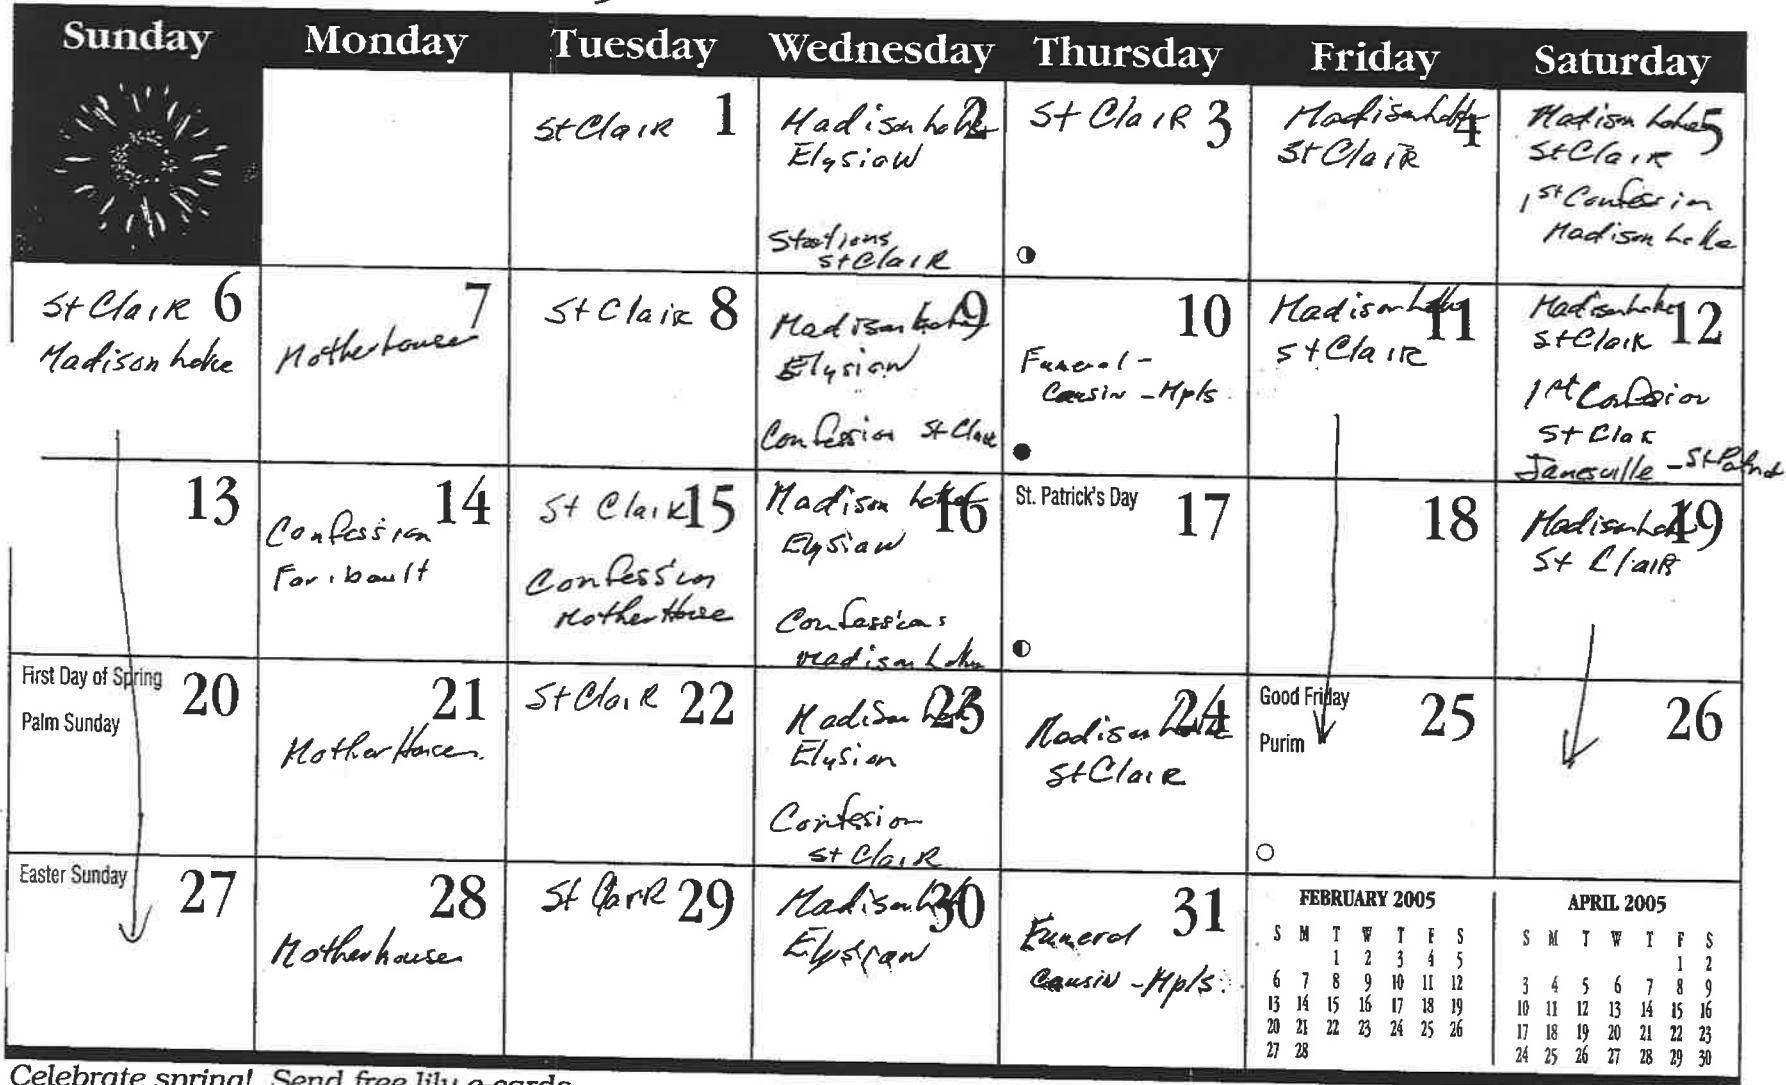 Sunday Monday Tuesday Wednesday Thursday Friday Saturday
St Clair 1
Madison Lake 2
Elysian
Stations
St Clair
St Clair 3
Madison Lake 4
St Clair
Madison Lake 5
St Clair
1st Confession
Madison Lake
St Clair 6
Madison Lake
7
Motherhouse
St Clair 8
Madison Lake 9
Elysian
Confession St Clair
10
Funeral -
Cousin - Mpls
Madison Lake 11
St Clair
Madison Lake 12
St Clair
1st Confesion
St Clair
Janesville - St Patrick
13
14
Confession
Faribault
St Clair 15
Confession
Mother House
Madison Lake 16
Elysian
Confessions
Madison Lake
St. Patrick's Day 17
18
Madison Lake 19
St Clair
First Day of Spring 20
Palm Sunday
21
Mother House
St Clair 22
Madison Lake 23
Elysian
Confesion
St Clair
24
Madison Lake
St Clair
Good Friday 25
Purim
26
Easter Sunday 27
28
Motherhouse
St Clair 29
Madison Lake 30
Elysian
31
Funeral
Cousin - Mpls.
FEBRUARY 2005
S M T W T F S
1 2 3 4 5
6 7 8 9 10 11 12
13 14 15 16 17 18 19
20 21 22 23 24 25 26
27 28
APRIL 2005
S M T W T F S
1 2
3 4 5 6 7 8 9
10 11 12 13 14 15 16
17 18 19 20 21 22 23
24 25 26 27 28 29 30
Celebrate spring! Send free lily e-cards